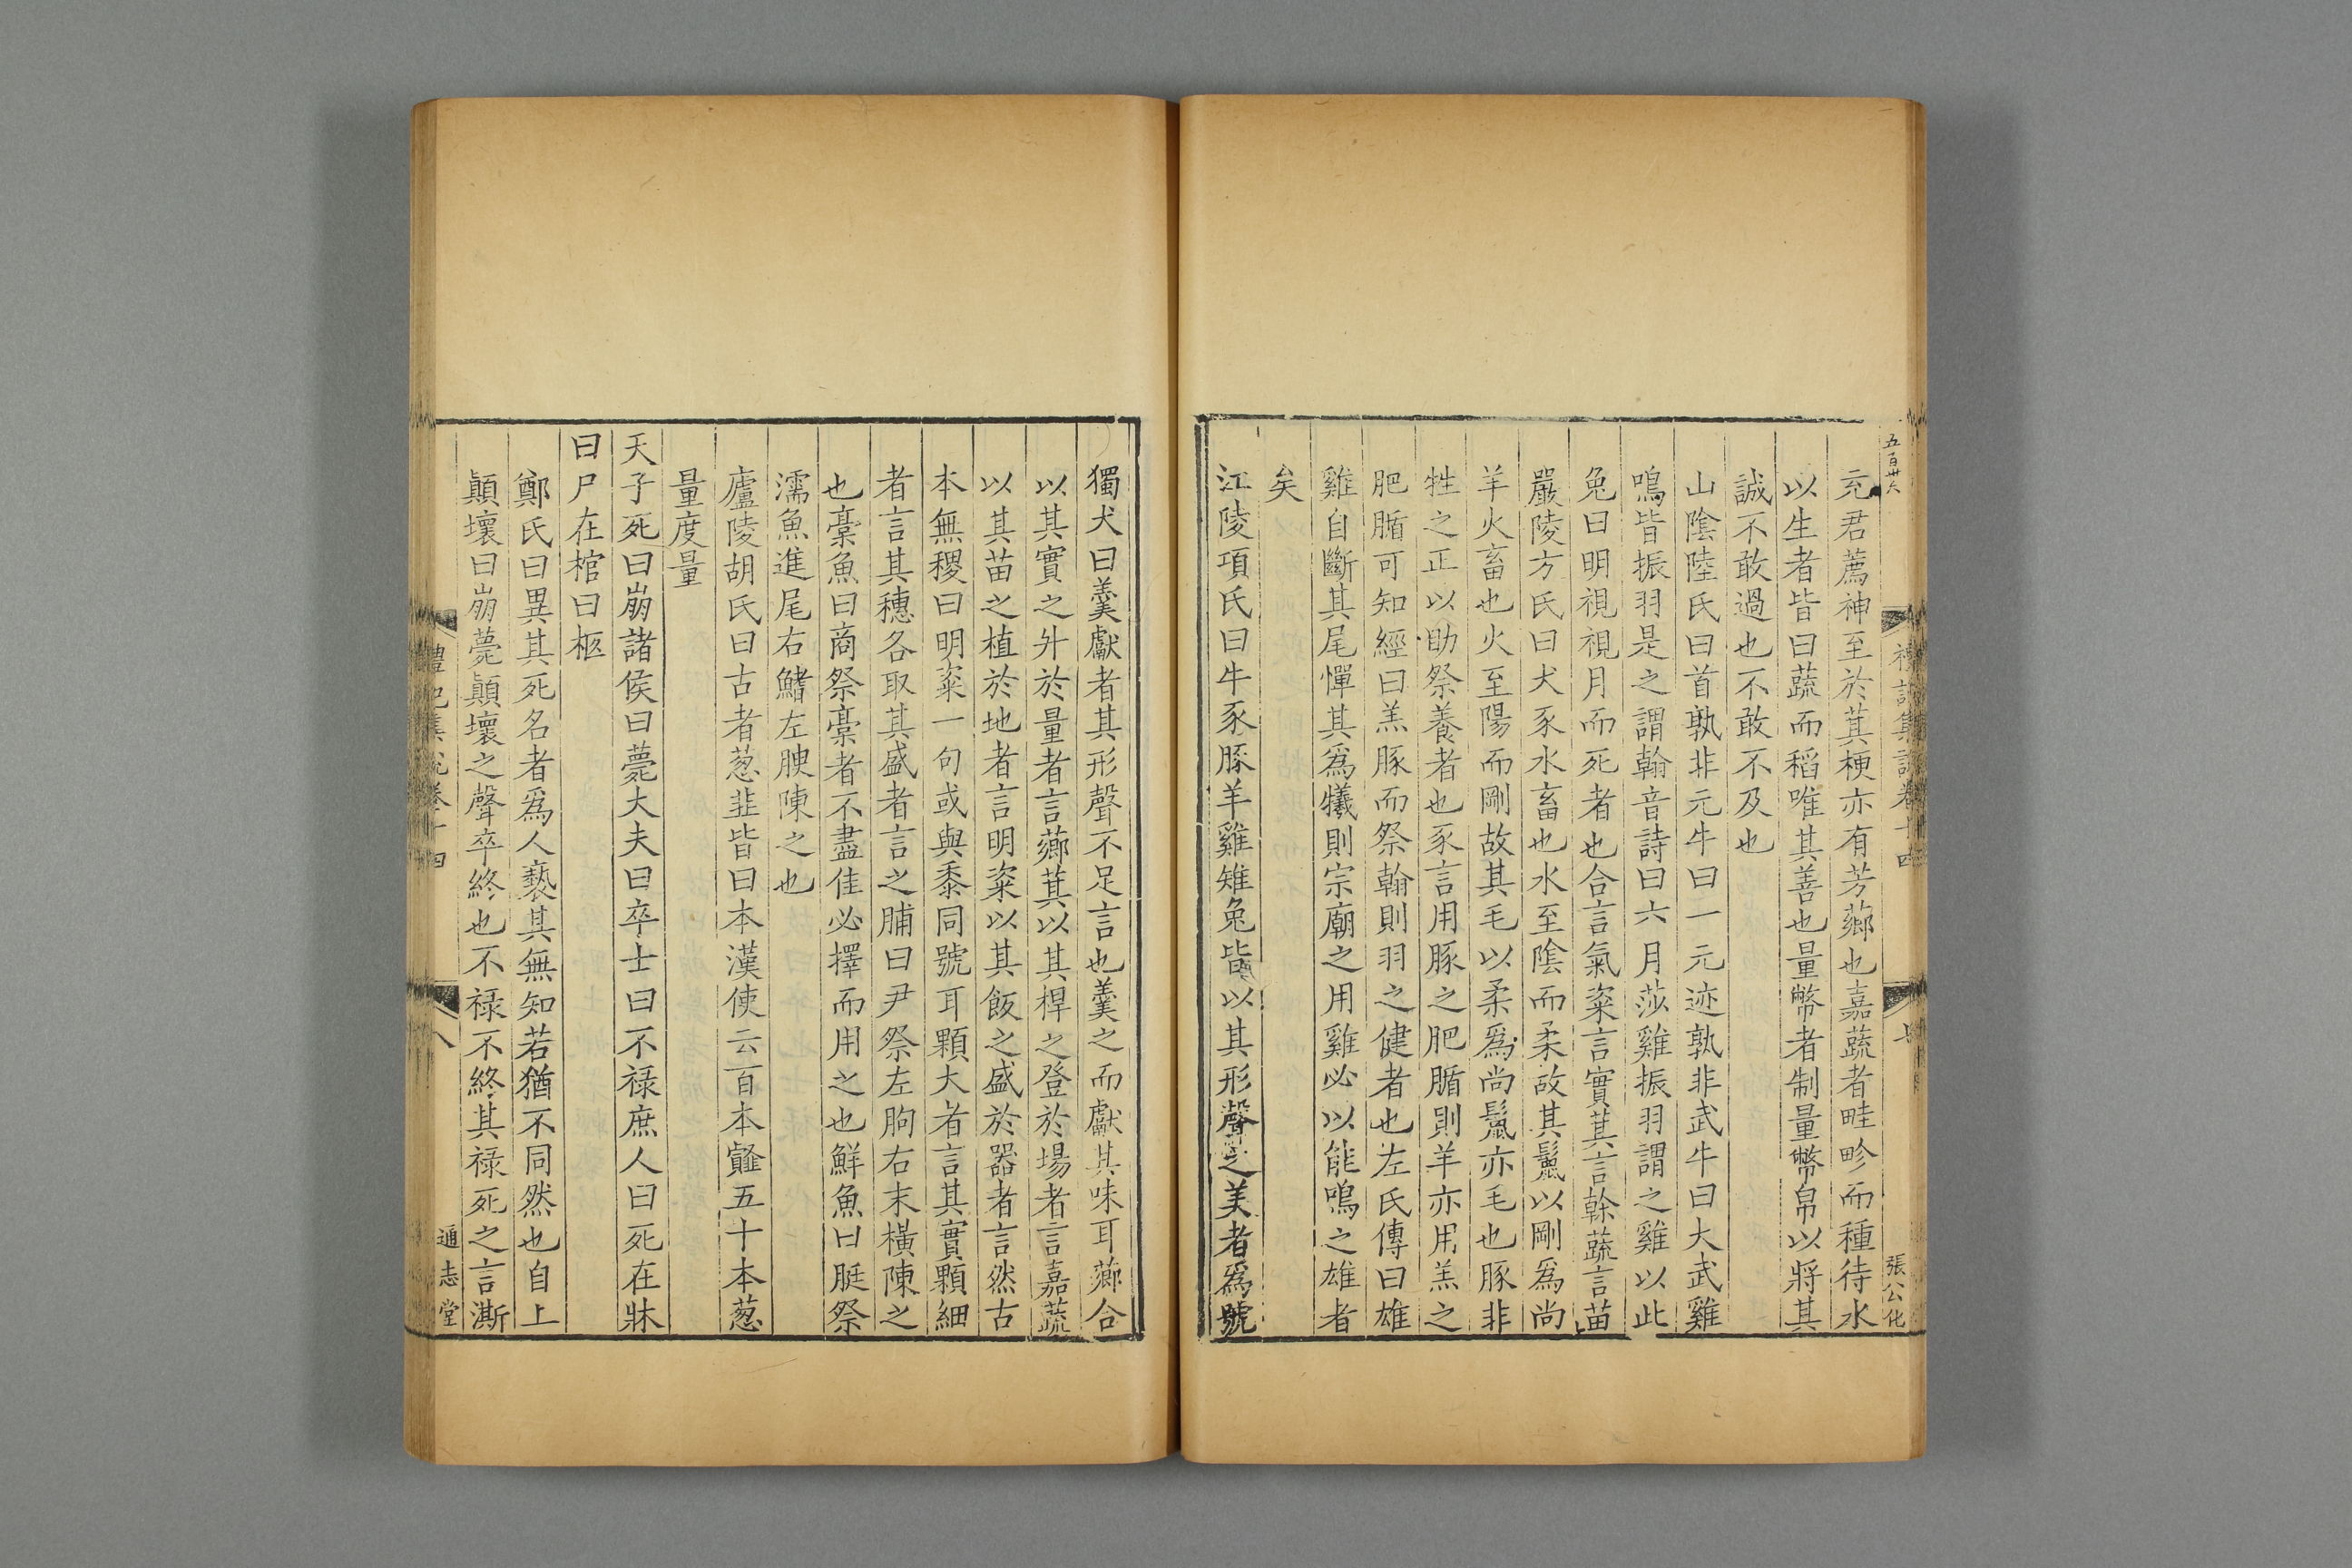 五百卅六
禮記集說卷十四
七
張公化
充君薦神至於萁梗亦有芳薌也嘉蔬者畦畛而種待水
以生者皆曰蔬而稻唯其善也量幣者制量幣帛以將其
誠不敢過也不敢不及也
山陰陸氏曰首孰非元牛曰一元迹孰非武牛曰大武雞
鳴皆振羽是之謂翰音詩曰六月莎雞振羽謂之雞以此
兔曰明視視月而死者也合言氣粢言實其言榦蔬言苗
嚴陵方氏曰犬豕水畜也水至陰而柔故其鬣以剛爲尚
羊火畜也火至陽而剛故其毛以柔爲尚鬣亦毛也豚非
牲之正以助祭養者也豕言用豚之肥腯則羊亦用羔之
肥腯可知經曰羔豚而祭翰則羽之健者也左氏傳曰雄
雞自斷其尾憚其爲犧則宗廟之用雞必以能鳴之雄者
矣
江陵項氏曰牛豕豚羊雞雉兔皆以其形聲之美者爲號
獨犬曰羹獻者其形聲不足言也羹之而獻其味耳薌合
以其實之升於量者言薌萁以其稈之登於場者言嘉蔬
以其苗之植於地者言明粢以其飯之盛於器者言然古
本無稷曰明粢一句或與黍同號耳顆大者言其實顆細
者言其穗各取其盛者言之脯曰尹祭左朐右末橫陳之
也槀魚曰商祭槀者不盡佳必擇而用之也鮮魚曰脡祭
濡魚進尾右鰭左腴陳之也
廬陵胡氏曰古者葱韭皆曰本漢使云百本䪥五十本葱
量度量
天子死曰崩諸侯曰薨大夫曰卒士曰不禄庶人曰死在牀
曰尸在棺曰柩
鄭氏曰異其死名者爲人褻其無知若猶不同然也自上
顛壞曰崩薨顛壞之聲卒終也不禄不終其禄死之言澌
禮記集說卷十四
八
通志堂